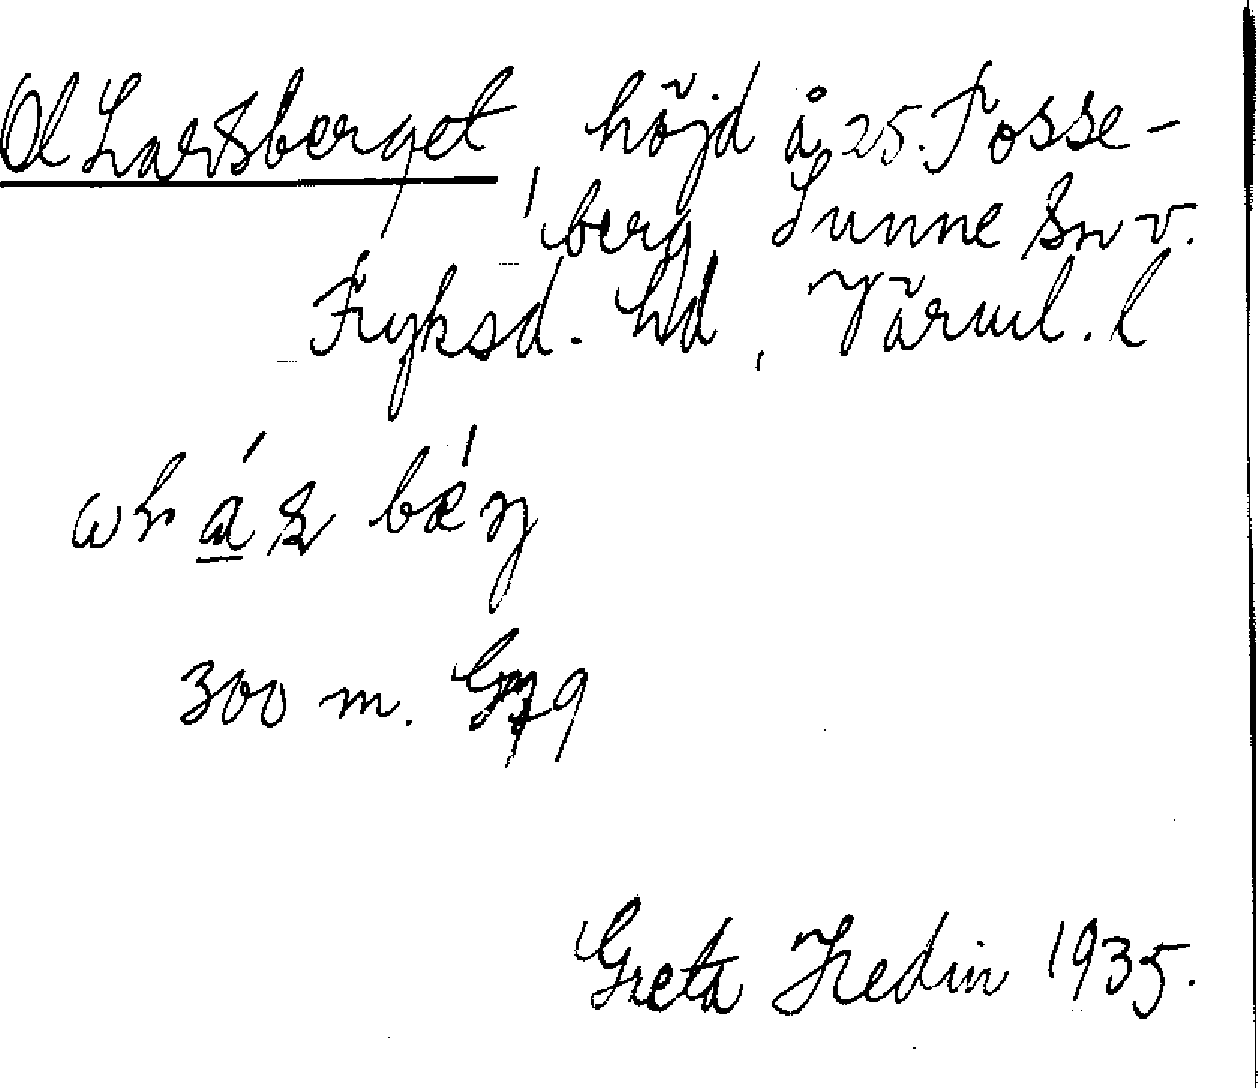 Ol Larsberget, höjd å 25. Fosse-
berg, Sunne sn v.
Fryksd. hd, Värml. l
300 m.
Greta Hedin 1935.